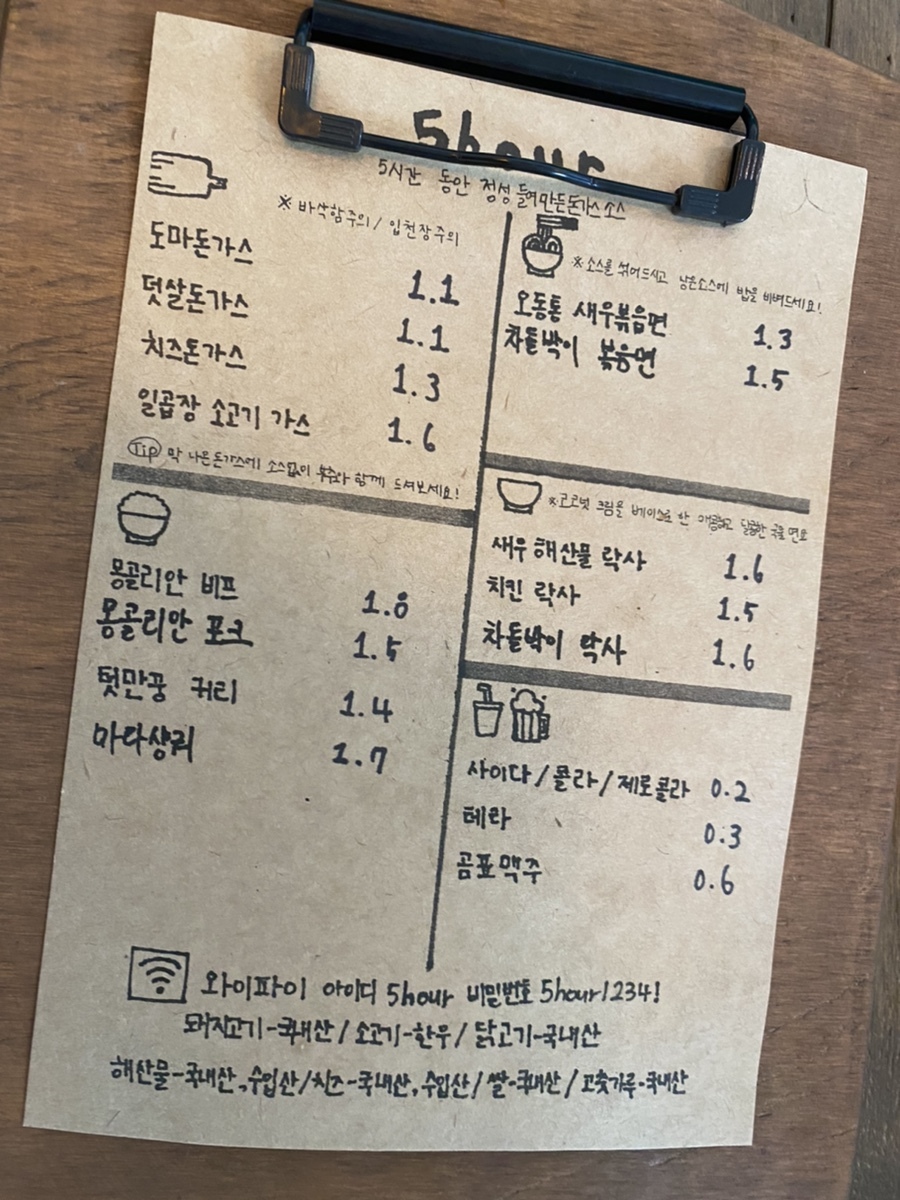 5hour
5시간 동안 정성 들여만든돈가스소스
※ 바삭함주의 / 입천장주의
도마돈가스 1.1
덧살돈가스 1.1
치즈돈가스 1.3
일곱장 소고기 가스 1.6
Tip 막 나온돈가스에 소스없이 후추와 함께 드셔보세요!
몽골리안 비프 1.8
몽골리안 포크 1.5
텃만꿍 커리 1.4
마라샹궈 1.7
※ 소스를 섞어드시고 남은소스에 밥을 비벼드세요!
오동통 새우볶음면 1.3
차돌박이 볶음면 1.5
※코코넛 크림을 베이스로 한 매콤하고 달콤한 국물 면요
새우 해산물 락사 1.6
치킨 락사 1.5
차돌박이 락사 1.6
사이다 / 콜라 / 제로콜라 0.2
테라 0.3
곰표맥주 0.6
와이파이 아이디 5hour 비밀번호 5hour1234!
돼지고기-국내산 / 소고기-한우 / 닭고기-국내산
해산물-국내산, 수입산 / 치즈-국내산, 수입산 / 쌀-국내산 / 고춧가루-국내산